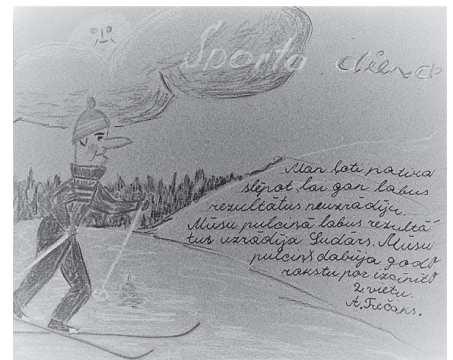 Sporta diena
Man ļoti patika
slēpot lai gan labus
rezultātus neuzrādīju.
Mūsu pulciņā labus rezultā
tus uzrādīja Sudārs. Mūsu
pulciņš dabūja godo
rakstu par izcīnīto
2. vietu.
A. Trečaks.